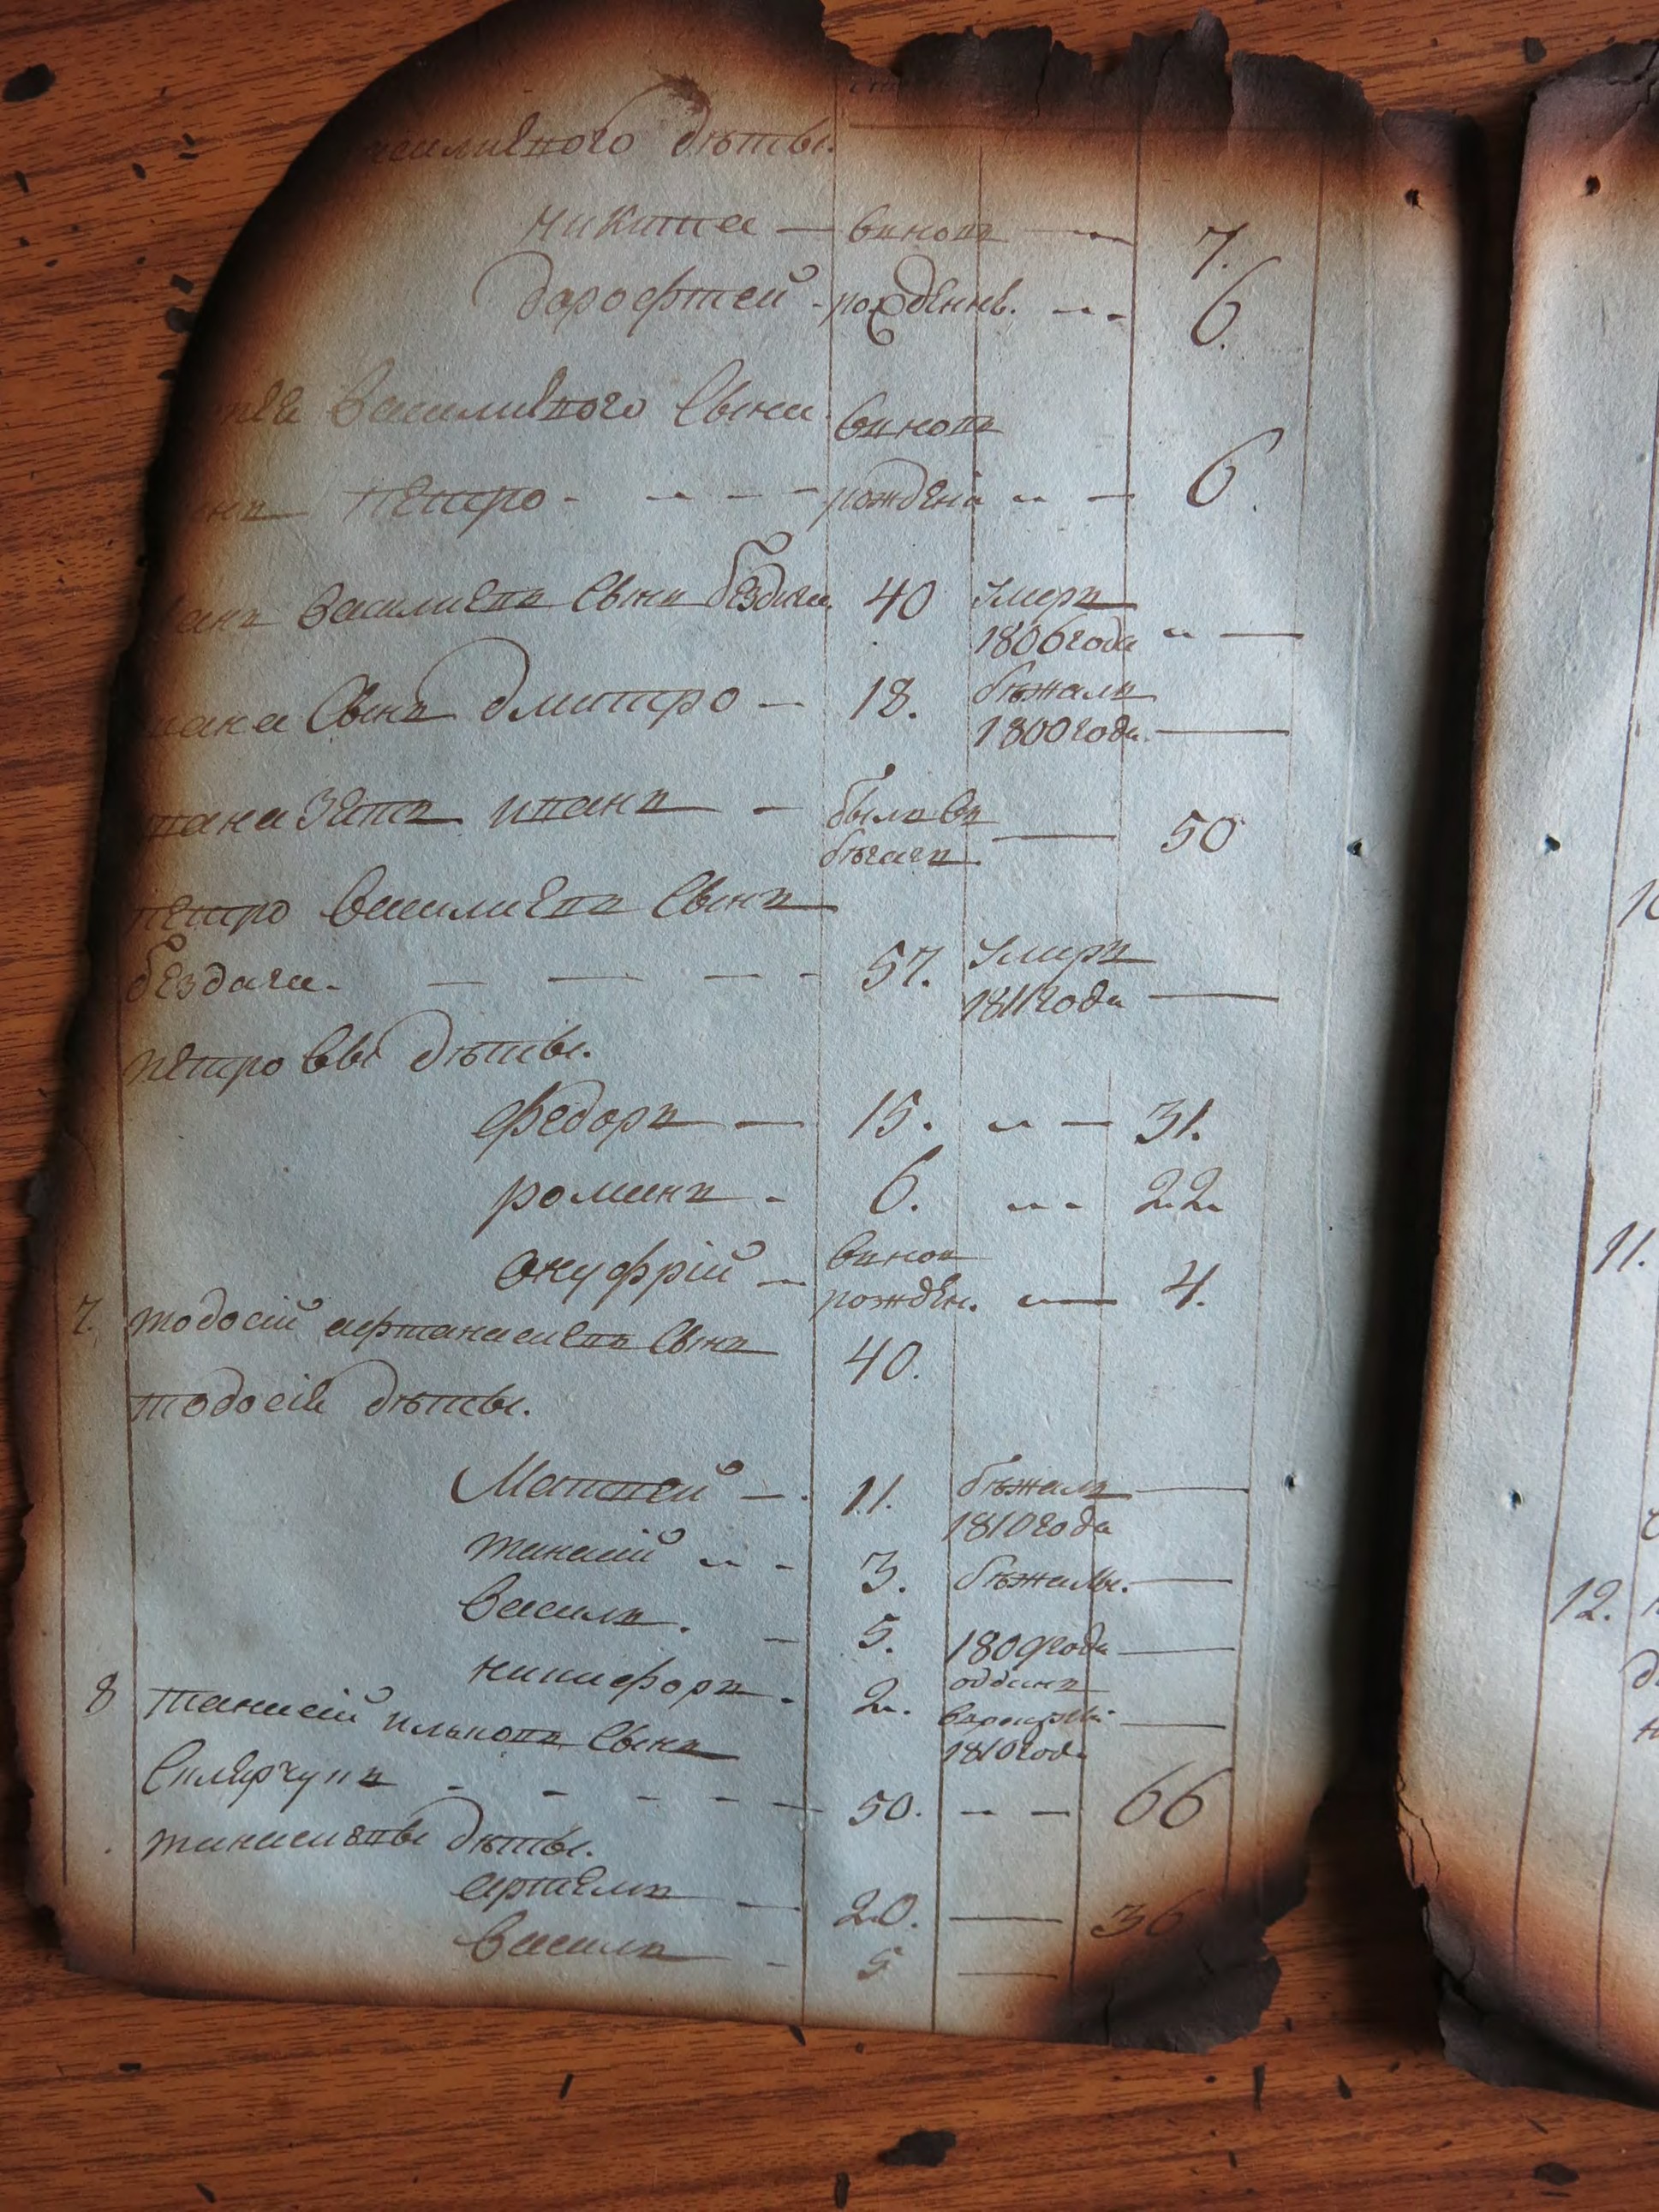 дѣтьи.
никита — вновь — 7.
дорофтей - рожденнь. 6.
василиевого сына вновь
петро - рожденъ — 6.
василиевъ сынъ бездега 40 умеръ
1806 года
сынъ дмитро — 18. бѣжалъ
1800 года
зять иванъ — былъ въ
бѣгахъ — 50
петро василиевъ сынъ
бездега - 57. умеръ
1811 года
петровы дѣтьи.
федоръ — 15. — 31.
романъ - 6. - 22
онуфрій — вновь
рожден. — 4.
7. тодосій афтанасиевъ сынъ 40.
тодосія дѣтьи.
Матвей — 11. бѣжалъ
1810 года
танасій - 3. бѣжалы.
василь. - 5. 1809 года
никифоръ - 2. отданъ
1810 года
8 танасій ильковъ сынъ
- - - 50. - — 66
танасиевы дѣтьи.
артемъ — 20. — 36
василь - 5 —
10
11.
12.